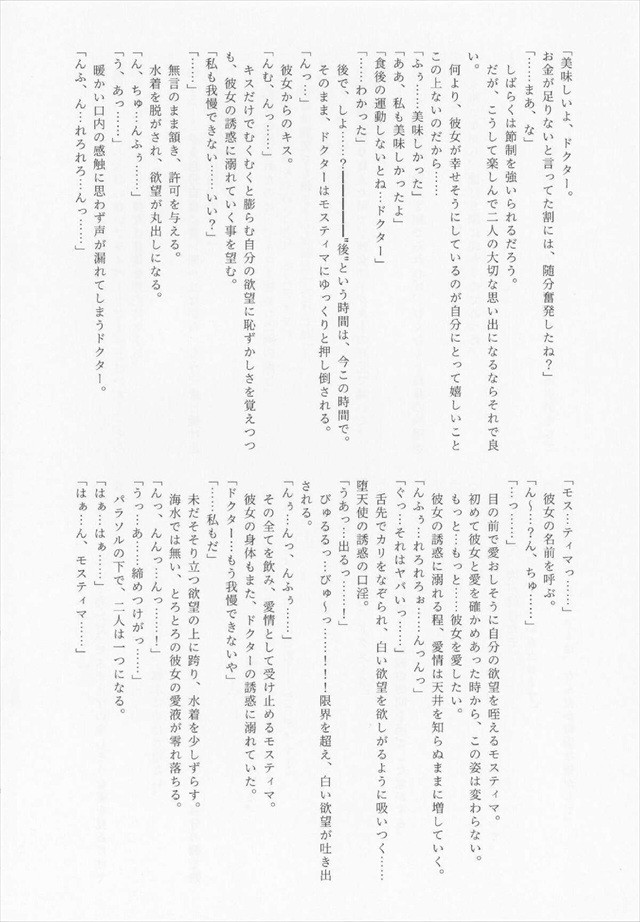 「美味しいよ、ドクター。
お金が足りないと言ってた割には、随分奮発したね？」
「……まあ、な」
しばらくは節制を強いられるだろう。
だが、こうして楽しんで二人の大切な思い出になるならそれで良
い。
何より、彼女が幸せそうにしているのが自分にとって嬉しいこと
この上ないのだから……
「ふぅ……美味しかった」
「ああ、私も美味しかったよ」
「食後の運動しないとね…ドクター」
「……わかった」
後で、しよ……？――――――"後"という時間は、今この時間で。
そのまま、ドクターはモスティマにゆっくりと押し倒される。
「んっ…」
彼女からのキス。
「んむ、んっ……」
キスだけでむくむくと膨らむ自分の欲望に恥ずかしさを覚えつつ
も、彼女の誘惑に溺れていく事を望む。
「私も我慢できない……いい？」
「……」
無言のまま頷き、許可を与える。
水着を脱がされ、欲望が丸出しになる。
「ん、ちゅ…んふぅ……」
「う、あっ……」
暖かい口内の感触に思わず声が漏れてしまうドクター。
「んふ、ん…れろれろ…んっ……」
「モス…ティマっ……」
彼女の名前を呼ぶ。
「ん～…？ん、ちゅ……」
「…っ……」
目の前で愛おしそうに自分の欲望を咥えるモスティマ。
初めて彼女と愛を確かめあった時から、この姿は変わらない。
もっと…もっと……彼女を愛したい。
彼女の誘惑に溺れる程、愛情は天井を知らぬままに増していく。
「んふぅ…れろれろぉ……んっんっ」
「ぐっ…それはヤバいっ……」
舌先でカリをなぞられ、白い欲望を欲しがるように吸いつく……
堕天使の誘惑の口淫。
「うあっ…出るっ……」
びゅるるっ…びゅ～っ……！！！限界を超え、白い欲望が吐き出
される。
「んぅ…んっ、んふぅ……」
その全てを飲み、愛情として受け止めるモスティマ。
彼女の身体もまた、ドクターの誘惑に溺れていた。
「ドクター…もう我慢できないや」
「……私もだ」
未だそそり立つ欲望の上に跨り、水着を少しずらす。
海水では無い、とろとろの彼女の愛液が零れ落ちる。
「んっ、んんっ…んっ……！」
「うっ…あ……締めつけがっ……」
パラソルの下で、二人は一つになる。
「はぁ…はぁ……」
「はぁ…ん、モスティマ……」